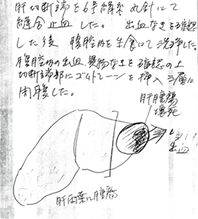 肝切断端を6号絹糸 丸針にて
縫合止血した。 出血なきを確認
した後 腹腔内を生食にて洗浄した。
腹腔内の出血 異物なきを確認の上
切断端部にゴムドレーンを挿入 3層に
閉腹した。
肝腫瘍
出血
肝両葉に腫瘍